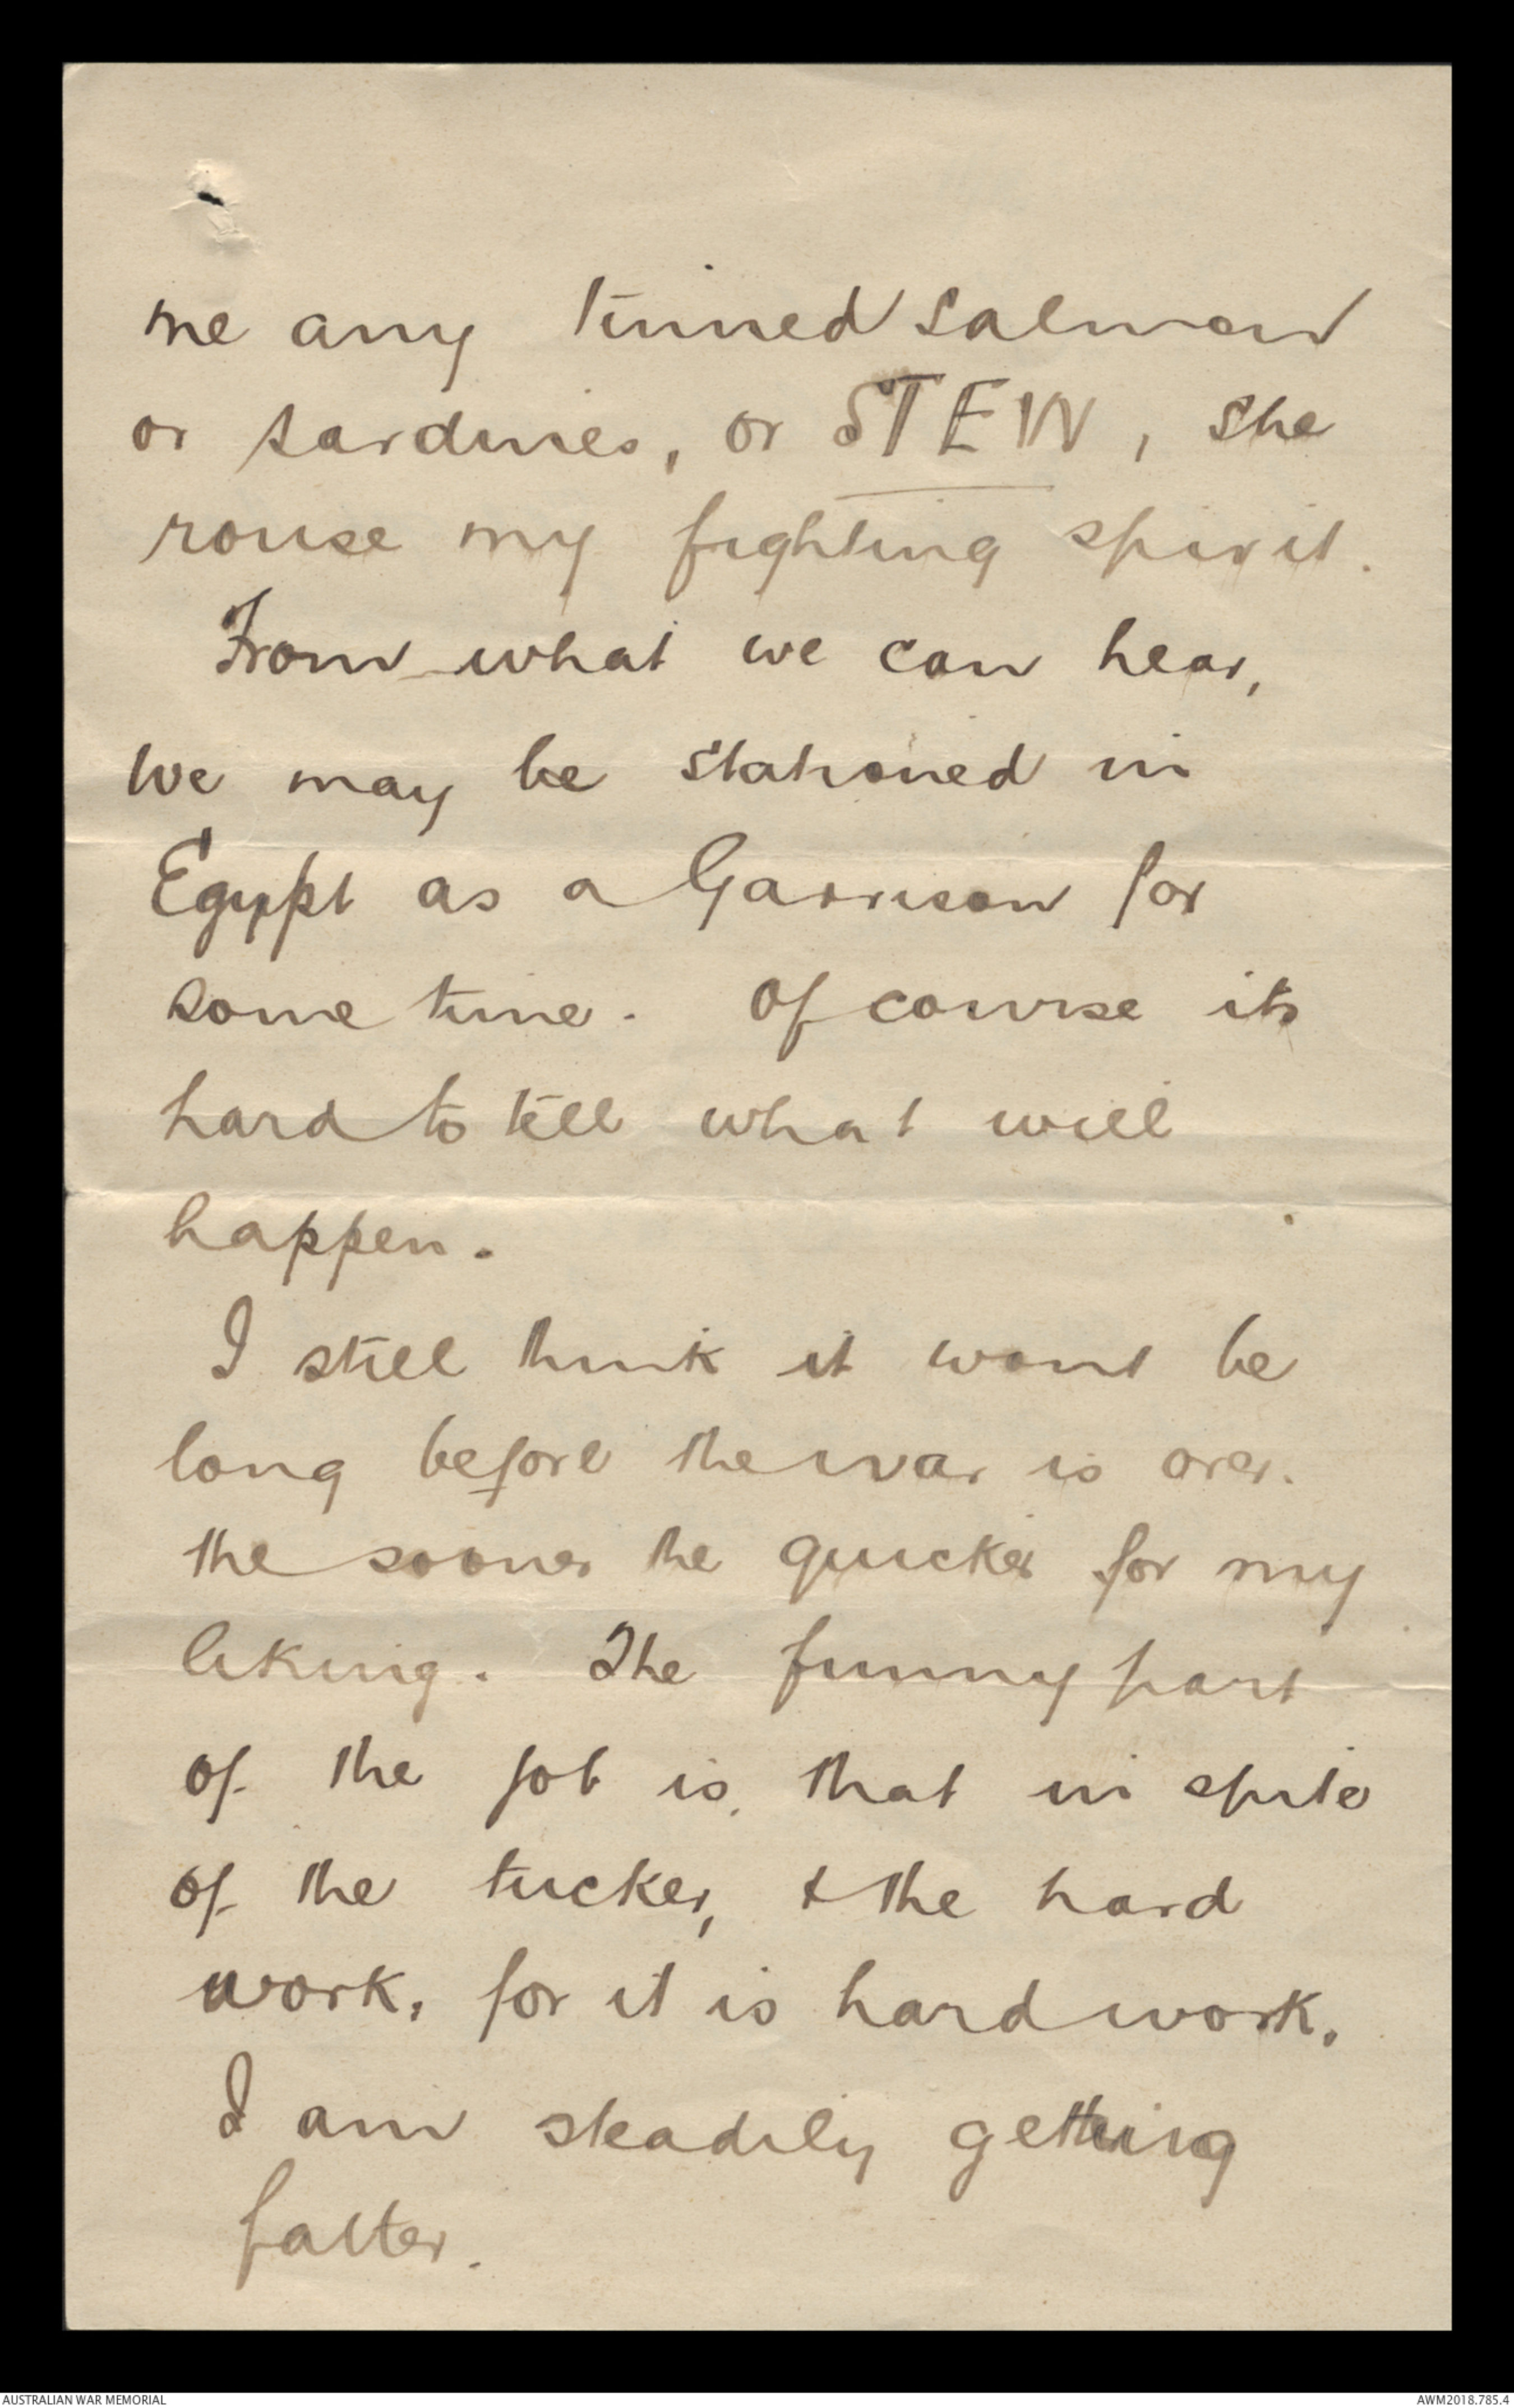 me any tinned salmon
or sardines, or STEW, she
rouse my fighting spirit.
From what we can hear,
we may be stationed in
Egypt as a Garrison for
some time. Of course its
hard to tell what will
happen.
I still think it wont be
long before the war is over.
the sooner the quicker for my
liking. The funny part
of the job is, that in spite
of the tucker, & the hard
work, for it is hard work,
I am steadily getting
fatter.
AUSTRALIAN WAR MEMORIAL
AWM2018.785.4